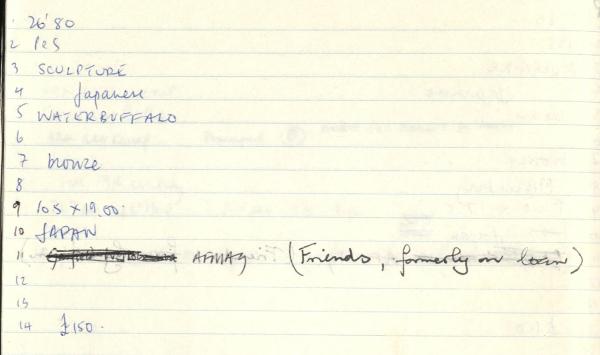 1 26'80
2 Pes
3 SCULPTURE
4 Japanese
5 WATERBUFFALO
6
7 bronze
8
9 10.5 x 19.00.
10 JAPAN
11 AFMAG (Friends, formerly on loan)
12
13
14 £150.